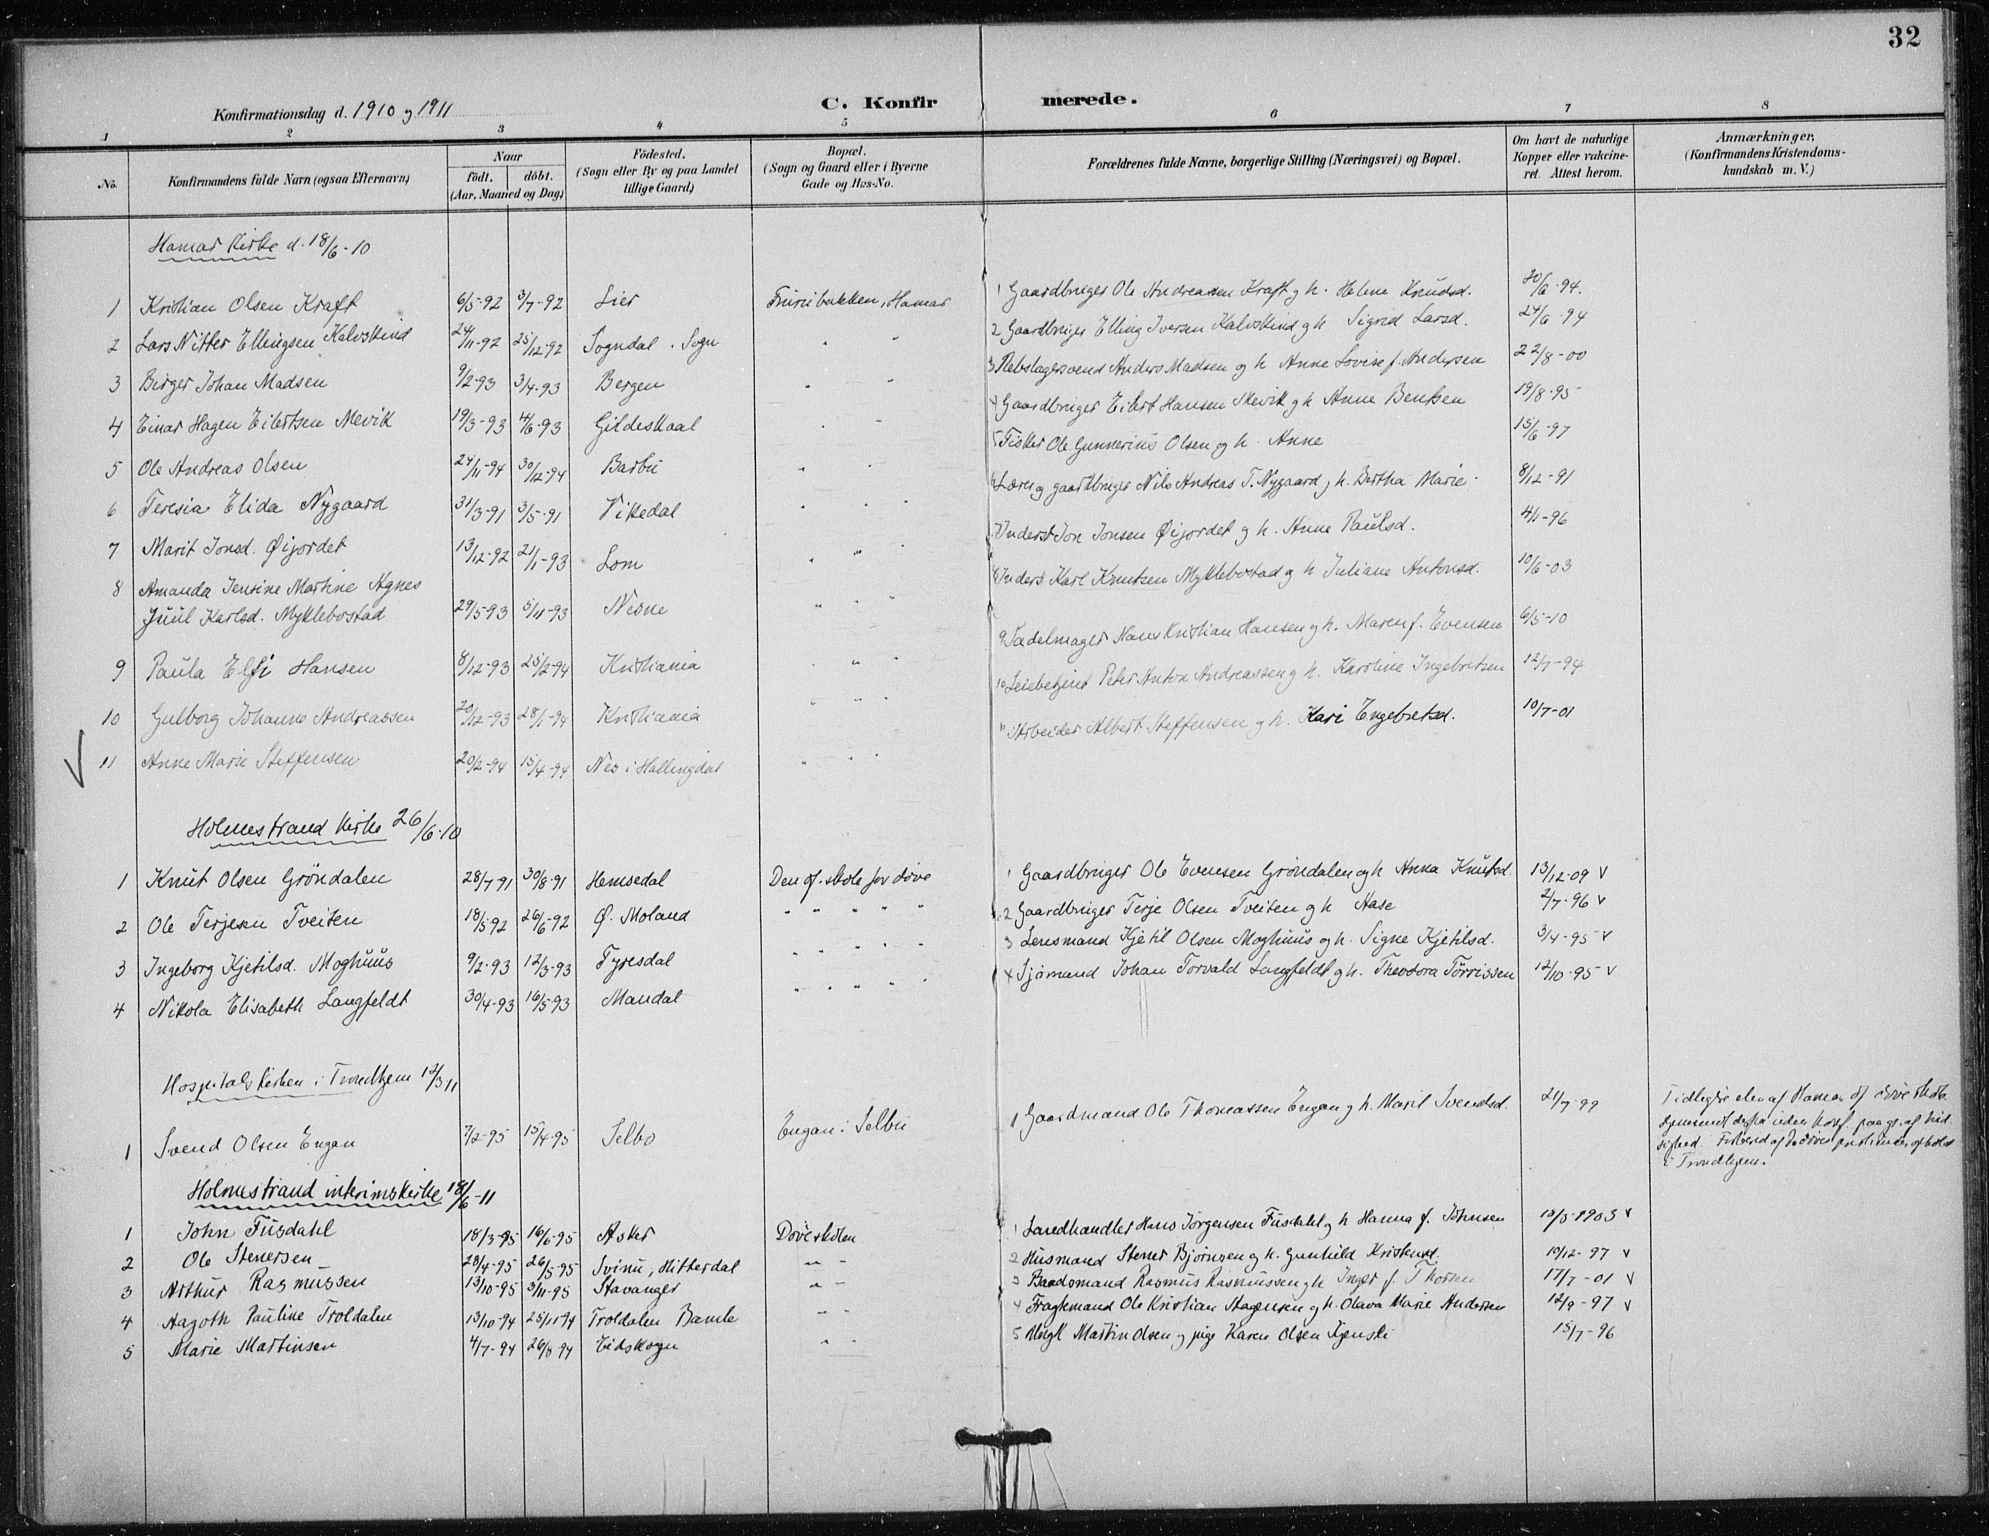 32
Konfirmationsdag d. 1910 og 1911
C. Konfirmerede.
1 2 3 4 5 6 7 8
No.
Konfirmandens fulde Navn (ogsaa Efternavn)
Naar
födt. döbt.
(Aar, Maaned og Dag)
Födested.
(Sogn eller By og paa Landet
tillige Gaard)
Bopæl.
(Sogn og Gaard eller i Byerne
Gade og Hus-No.
Forældrenes fulde Navne, borgerlige Stilling (Næringsvei) og Bopæl.
Om havt de naturlige
Kopper eller vakcine-
ret. Attest herom.
Anmærkninger.
(Konfirmandens Kristendoms-
kundskab m. V.)
Hamar Kirke d. 18/6-10
1 Kristian Olsen Kraft 6/5-92 3/7-92 Lier Furubakken, Hamar 1 Gaardbruger Ole Andreasen Kraft og h. Helene Knudsd. 20/6-94.
2 Lars Nitter Ellingsen Kalvskind 24/11-92 25/12-92 Sogndal. Sogn " " 2 Gaardbruger Elling Iversen Kalvskind og h Sigrid Larsd. 24/6-94
3 Birger Johan Madsen 9/2-93 3/4-93 Bergen " " 3 Rebslagersvend Anders Madsen og h Anne Lovise f. Andersen 22/8-00
4 Einar Hagen Eilertsen Mevik 19/3-93 4/6-93 Gildeskaal " " 4 Gaardbruger Eilert Hansen Mevik og h Anne Bentsen 19/8-95
5 Ole Andreas Olsen 24/11-94 30/12-94 Barbu " " 5 Fisker Ole Gunnerius Olsen og h. Anne 15/6-97
6 Teresia Elida Nygaard 31/3-91 3/5-91 Vikedal " " 6 Lærer og gaardbruger Nils Andreas T. Nygaard og h. Bertha Marie 8/12-91
7 Marit Jonsd. Øijordet 13/12-92 21/1-93 Lom " " " 7 Inderst Jon Jonsen Øijordet og h. Anne Paulsd. 4/1-96
8 Amanda Jensine Martine Agnes
Juul Karlsd. Myklebostad 29/5-93 5/11-93 Nesne " " " 8 Inders Karl Knutsen Myklebostad og h Juliane Antonsd. 10/6-03
9 Paula Elfi Hansen 8/12-93 25/2-94 Kristiania " " " 9 Sadelmager Hans Kristian Hansen og h. Maren f. Evensen 6/5-10
10 Gulborg Johanne Andreassen 20/12-93 28/1-94 Kristiania " " " 10 Leiebetjent Peter Anton Andreassen og h. Karoline Ingebretsen 12/7-94
11 Anne Marie Steffensen 20/2-94 15/4-94 Nes i Hallingdal " " " 11 Arbeider Albert Steffensen og h. Kari Engebretsd. 10/7-01
Holmestrand Kirke 26/6-10
1 Knut Olsen Gröndalen 28/7 91 30/8-91 Hemsedal Den of. skole for døve 1 Gaardbruger Ole Evensen Gröndalen og h Anna Knutsd. 13/12-09 v
2 Ole Terjesen Tveiten 18/5 92 26/6-92 Ø. Moland " " " " " 2 Gaardbruger Terje Olsen Tveiten og h Aase 2/7-96 v
3 Ingeborg Kjetilsd. Moghuus 9/2-93 12/3-93 Fyresdal " " " " " 3 Lensmand Kjetil Olsen Moghuus og h. Signe Kjetilsd. 3/4-95 v
4 Nikola Elisabeth Langfeldt 30/4-93 16/5-93 Mandal " " " " " 4 Sjømand Johan Torvald Langfeldt og h. Theodora Törrissen 12/10-95 v
Hospitalskirken i Trondhjem 12/3 11
1 Svend Olsen Engan 7/2-95 15/4-95 Selbo Engan i Selbu 1 Gaardmand Ole Thomassen Engan og h. Marit Svendsd. 21/7-99 Tidligere elev af Hamar of døveskole
Holmestrand interimskirke 18/6-11
1 John Fusdahl 18/3-95 16/6-95 Asker Døveskolen 1 Landhandler Hans Jørgensen Fusdahl og h Hanna f. Johnsen 13/5-1903 v
2 Ole Stenersen 28/4-95 26/5-95 Svinu, Hitterdal " " 2 Husmand Stener Bjørnsen og h. Gunhild Kristensd. 10/12-97 v
3 Arthur Rasmussen 13/10-95 3/11-95 Stavanger " " 3 Baadsmand Rasmus Rasmussen og h Inger f. Thorsen 17/7-01 v
4 Aagoth Pauline Troldalen 13/10-94 25/11 94 Troldalen Bamle " " 4 Fragtemand Ole Kristian Aagensen og h. Olava Marie Andersen 12/9-97 v
5 Marie Martinsen 4/7-94 26/8 94 Eidskogn " " 5 Ungk Martin Olsen og pige Karen Olsen 15/7-96